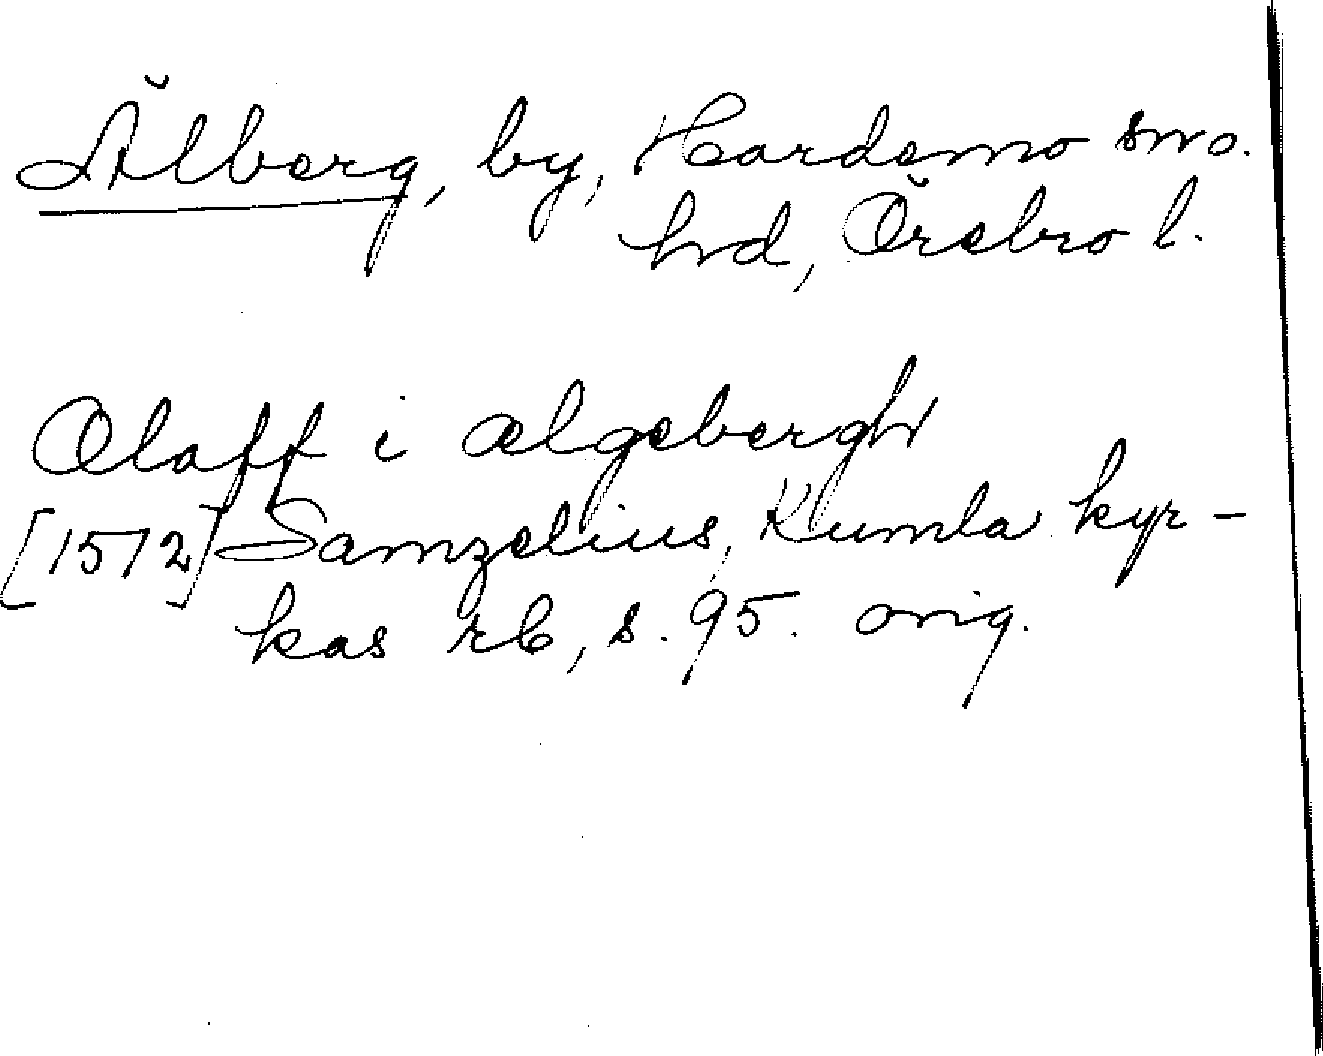 Älberg, by, Hardemo sno.
hd, Örebro l.
Olaff i ælgebergh
[1572] Samzelius, Kumla kyr-
kas rb, s. 95. orig.